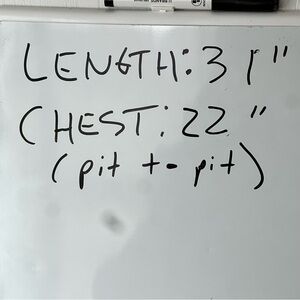 LENGTH: 31"
CHEST: 22"
(pit to pit)